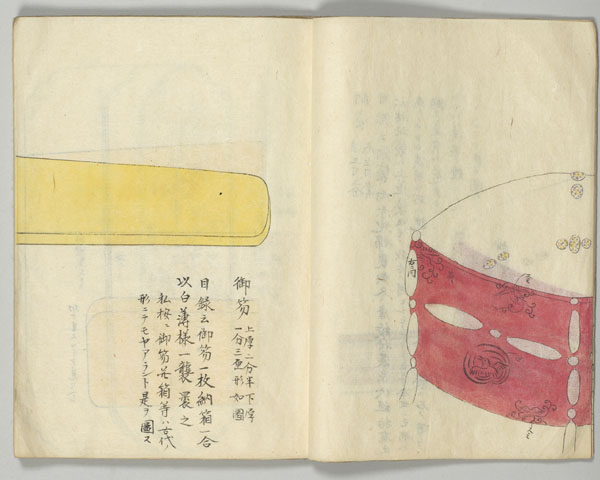 右同
御笏 上厚二分半下厚
一分三重形如圖
目録云御笏一枚納箱一合
以白薄様一襲裹之
私按、御笏並箱等ハ古代ノ
形ニテモヤアラント是ヲ圖ス